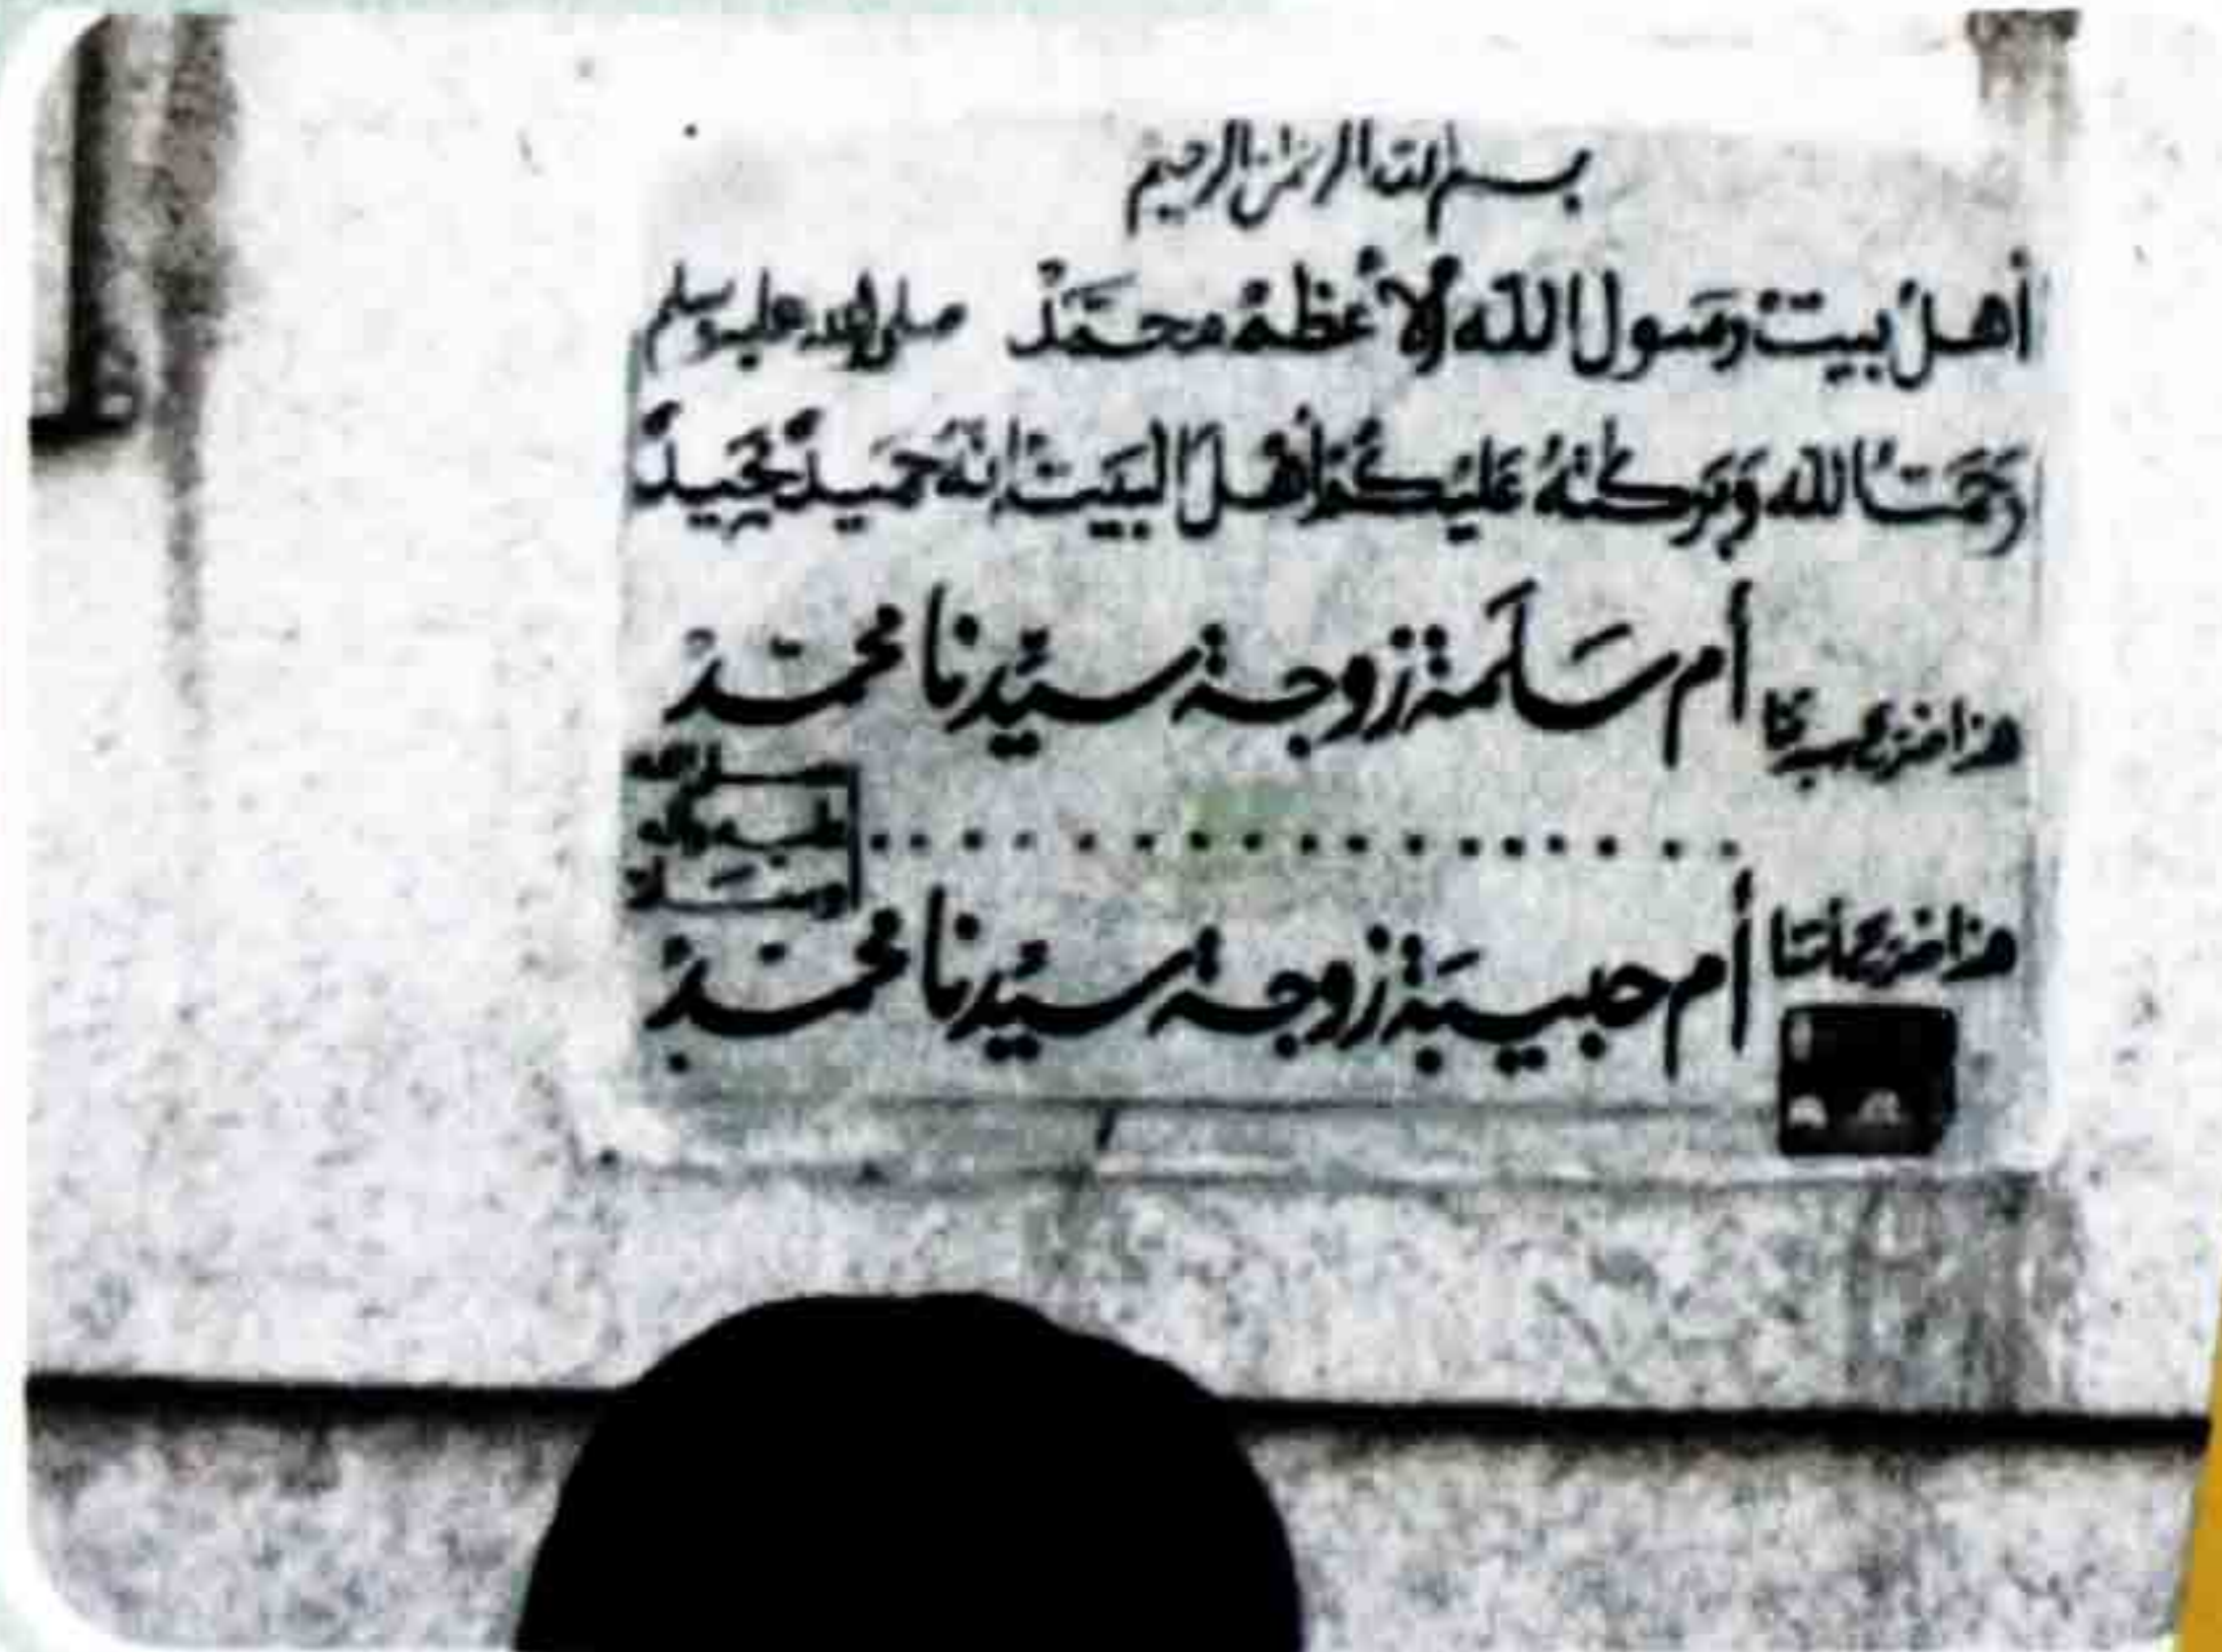 بسم الله الرحمن الرحيم
أهل بيت رسول الله الأعظم محمد صلى الله عليه وسلم
رحمت الله وبركته عليكم أهل البيت إنه حميد مجيد
هذا ضريح أم سلمة زوجة سيدنا محمد
صلى الله
عليه وآله
وسلم
هذا ضريح أم حبيبة زوجة سيدنا محمد